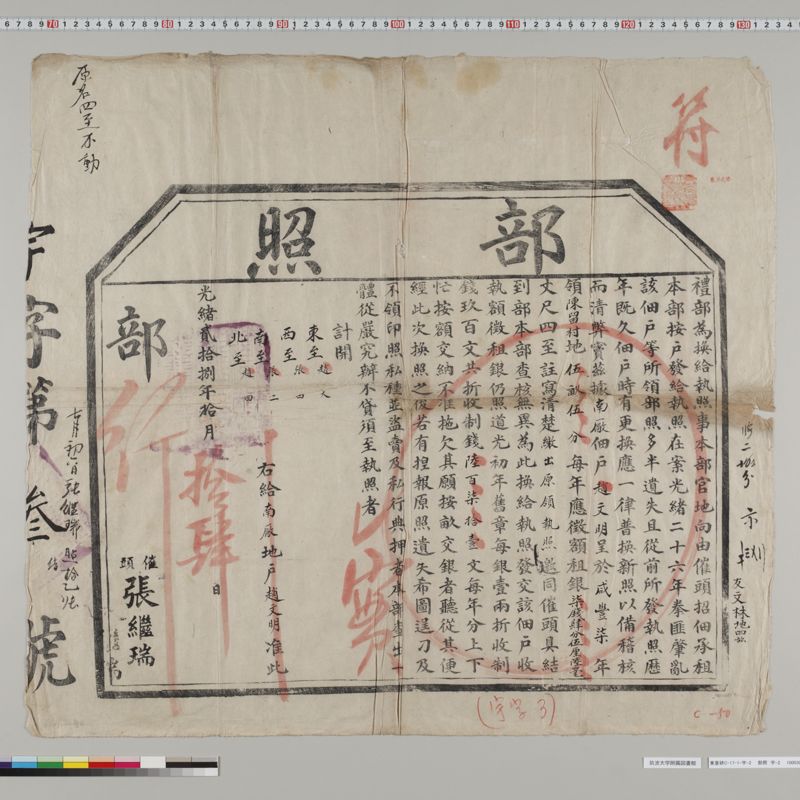 符
部照
禮部為換給執照事本部官地向由催頭招佃承租
本部按戶發給執照在案光緒二十六年拳匪肇亂
該佃戶等所領部照多半遺失且從前所發執照歷
年既久佃戶時有更換應一律普換新照以備稽核
而清弊竇茲據南厰佃戶趙文明呈於咸豐柒年
領陳留村地伍畝伍分每年應徵額租銀柒錢肆分伍厘
丈尺四至註寫清楚繳出原領執照邀同催頭具結
到部本部查核無異為此換給執照發交該佃戶收
執額徵租銀仍照道光初年舊章每銀壹兩折收制
錢玖百文共折收制錢陸百柒拾壹文每年分上下
忙按額交納不准拖欠其願按畝交銀者聽從其便
經此次換照之後若有捏報原照遺失希圖逞刁及
不領印照私種並盜賣及私行典押者本部查出一
體從嚴究辦不貸須至執照者
計開
東至趙
西至張四
南至張二
北至趙四
右給南厰地戶趙文明准此
光緒貳拾捌年拾月拾肆日
部行
催頭張繼瑞
字字第叁號
原名四至不動
友文林地四畝
(字字3)
C-50
筑波大学附属図書館